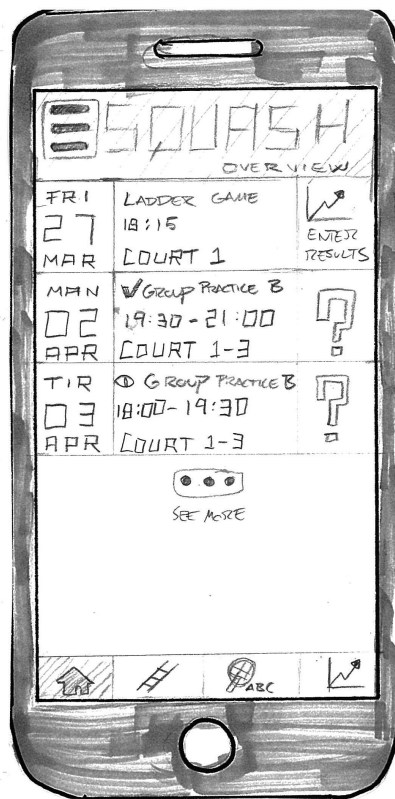 SQUASH
OVERVIEW
FRI
27
MAR
LADDER GAME
18:15
COURT 1
ENTER
RESULTS
MAN
02
APR
GROUP PRACTICE B
19:30 - 21:00
COURT 1-3
?
TIR
03
APR
GROUP PRACTICE B
18:00 - 19:30
COURT 1-3
?
SEE MORE
ABC